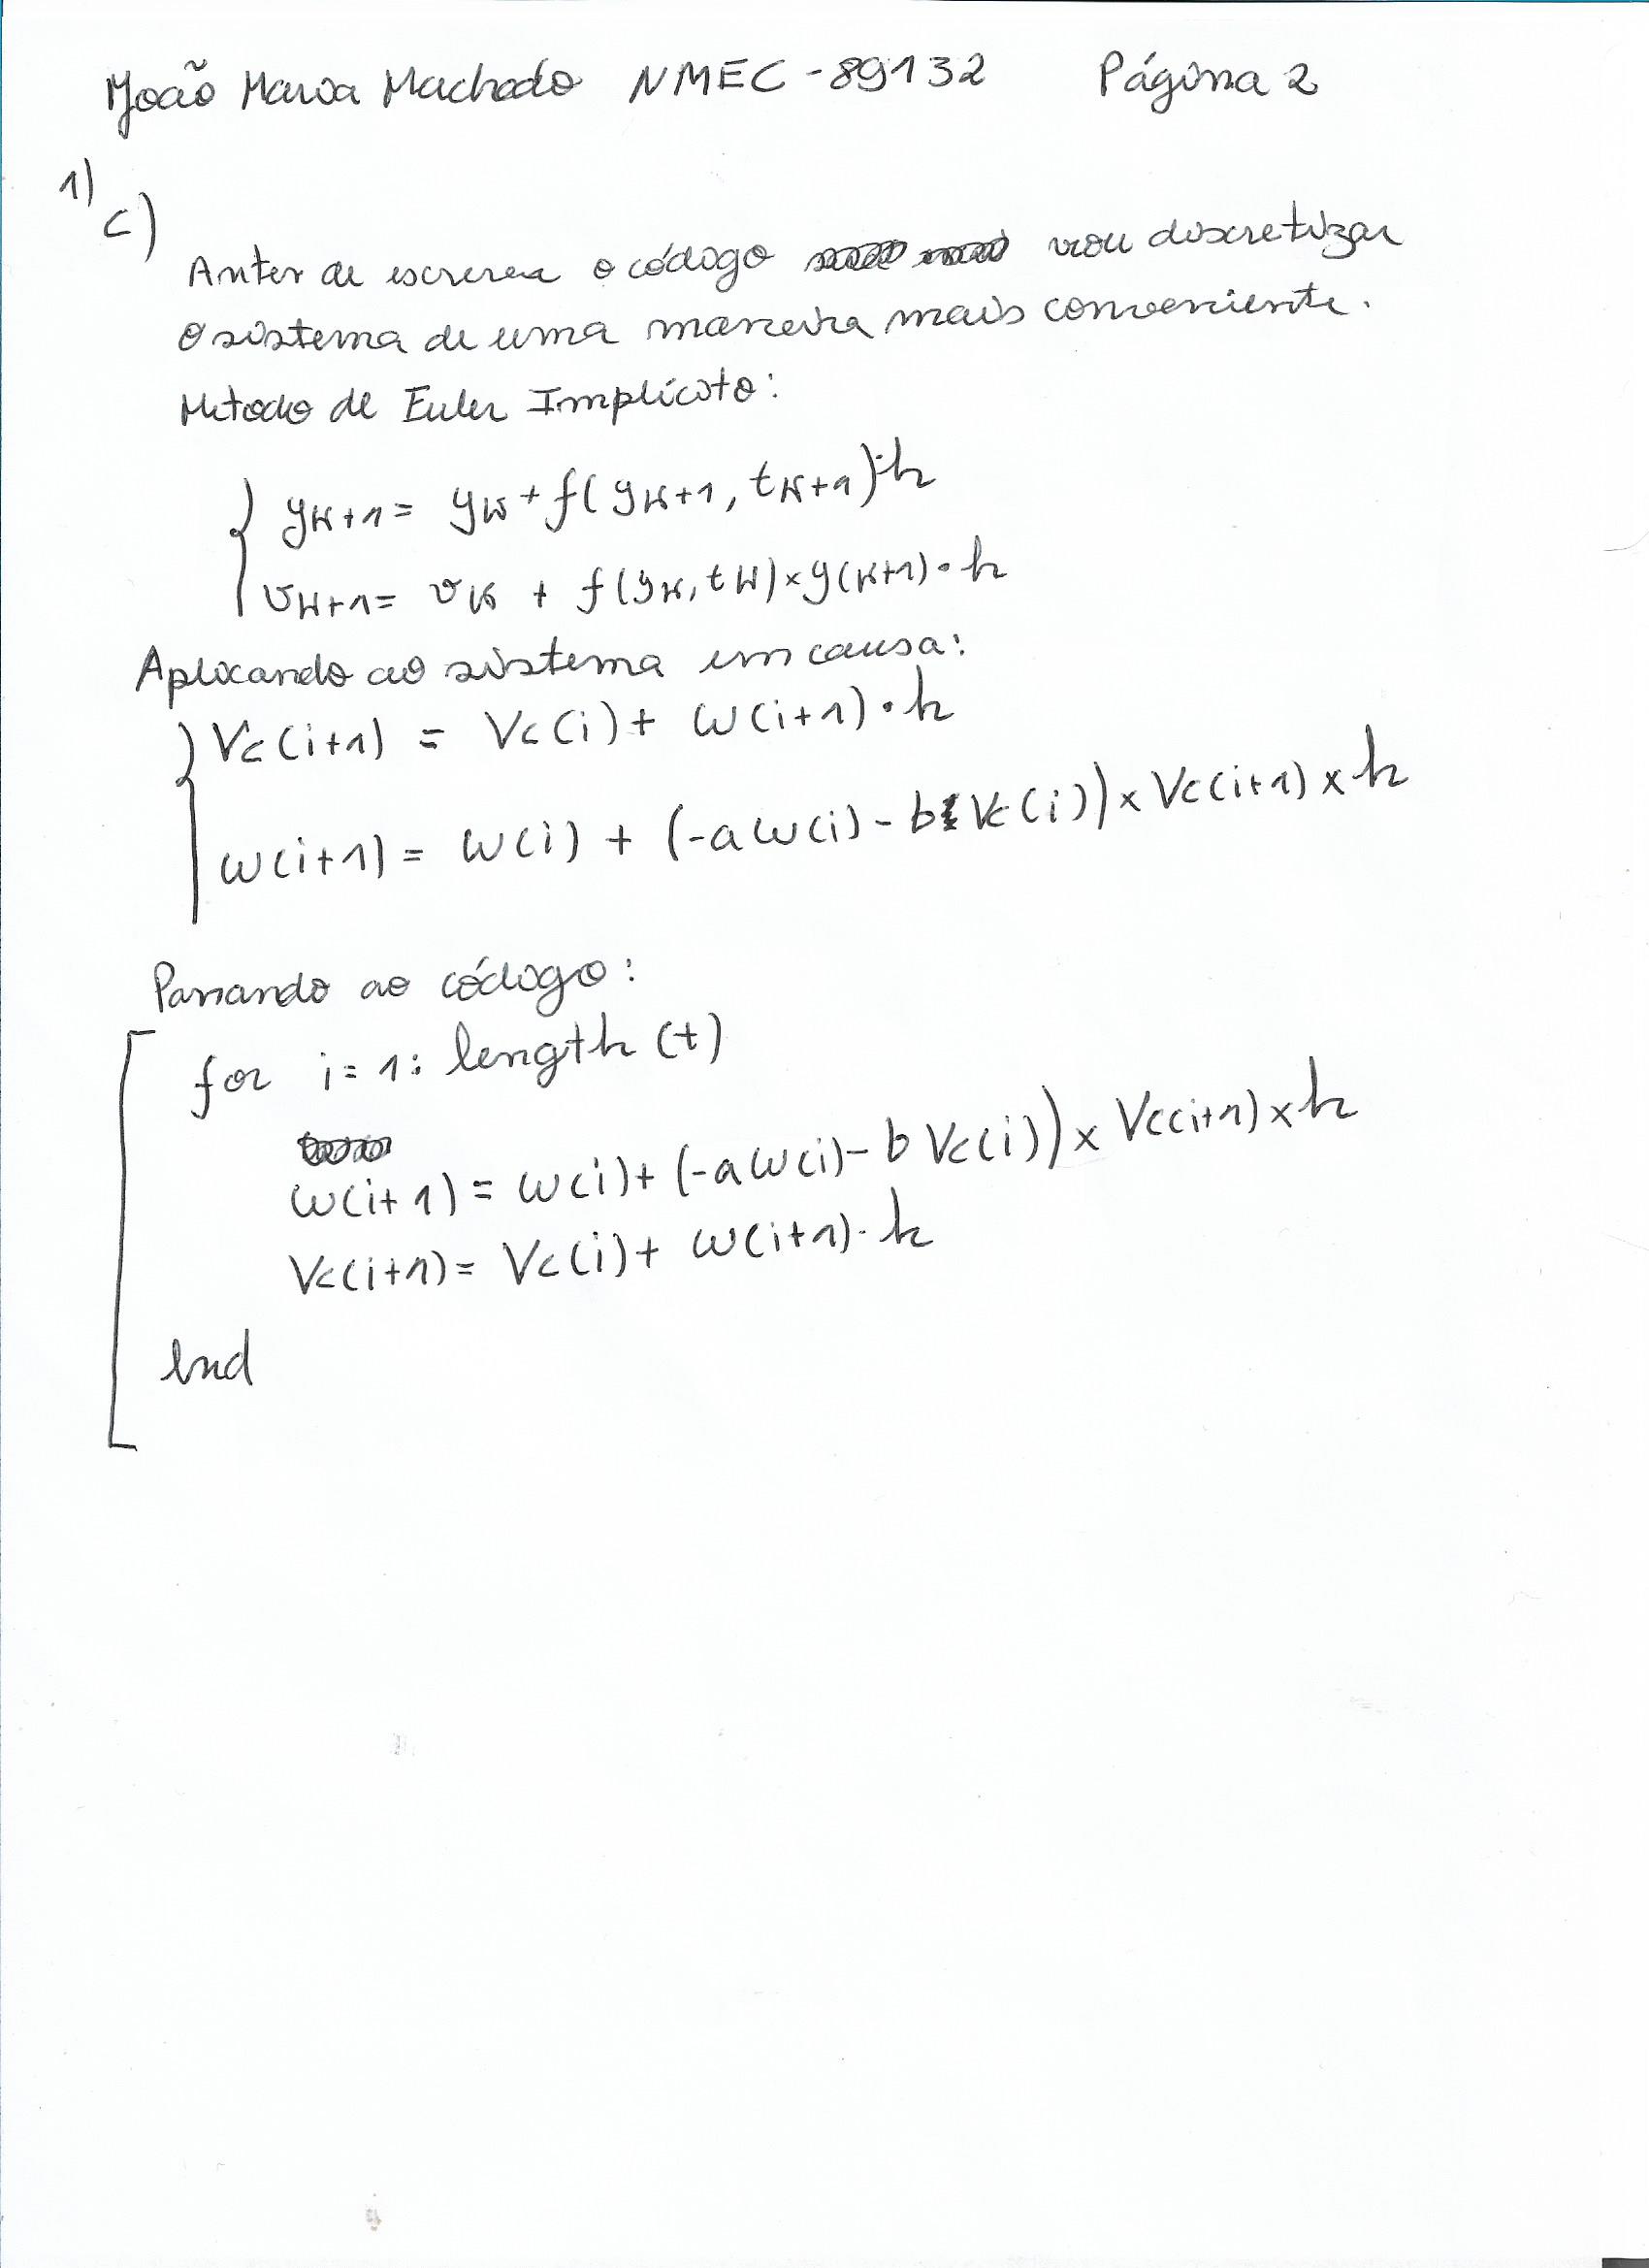 João Maria Machado NMEC - 89132 Página 2
1)
c)
Antes de escrever o código vou discretizar
o sistema de uma maneira mais conveniente.
Metodo de Euler Implícito:
{ yk+1 = yk + f(yk+1, tk+1)·h
vk+1 = vk + f(yk, tk) × y(k+1) · h
Aplicando ao sistema em causa:
{ Vc(i+1) = Vc(i) + w(i+1) · h
w(i+1) = w(i) + (-a w(i) - b Vc(i)) × Vc(i+1) × h
Passando ao código:
for i = 1: length (t)
w(i+1) = w(i) + (-a w(i) - b Vc(i)) × Vc(i+1) × h
Vc(i+1) = Vc(i) + w(i+1) · h
end